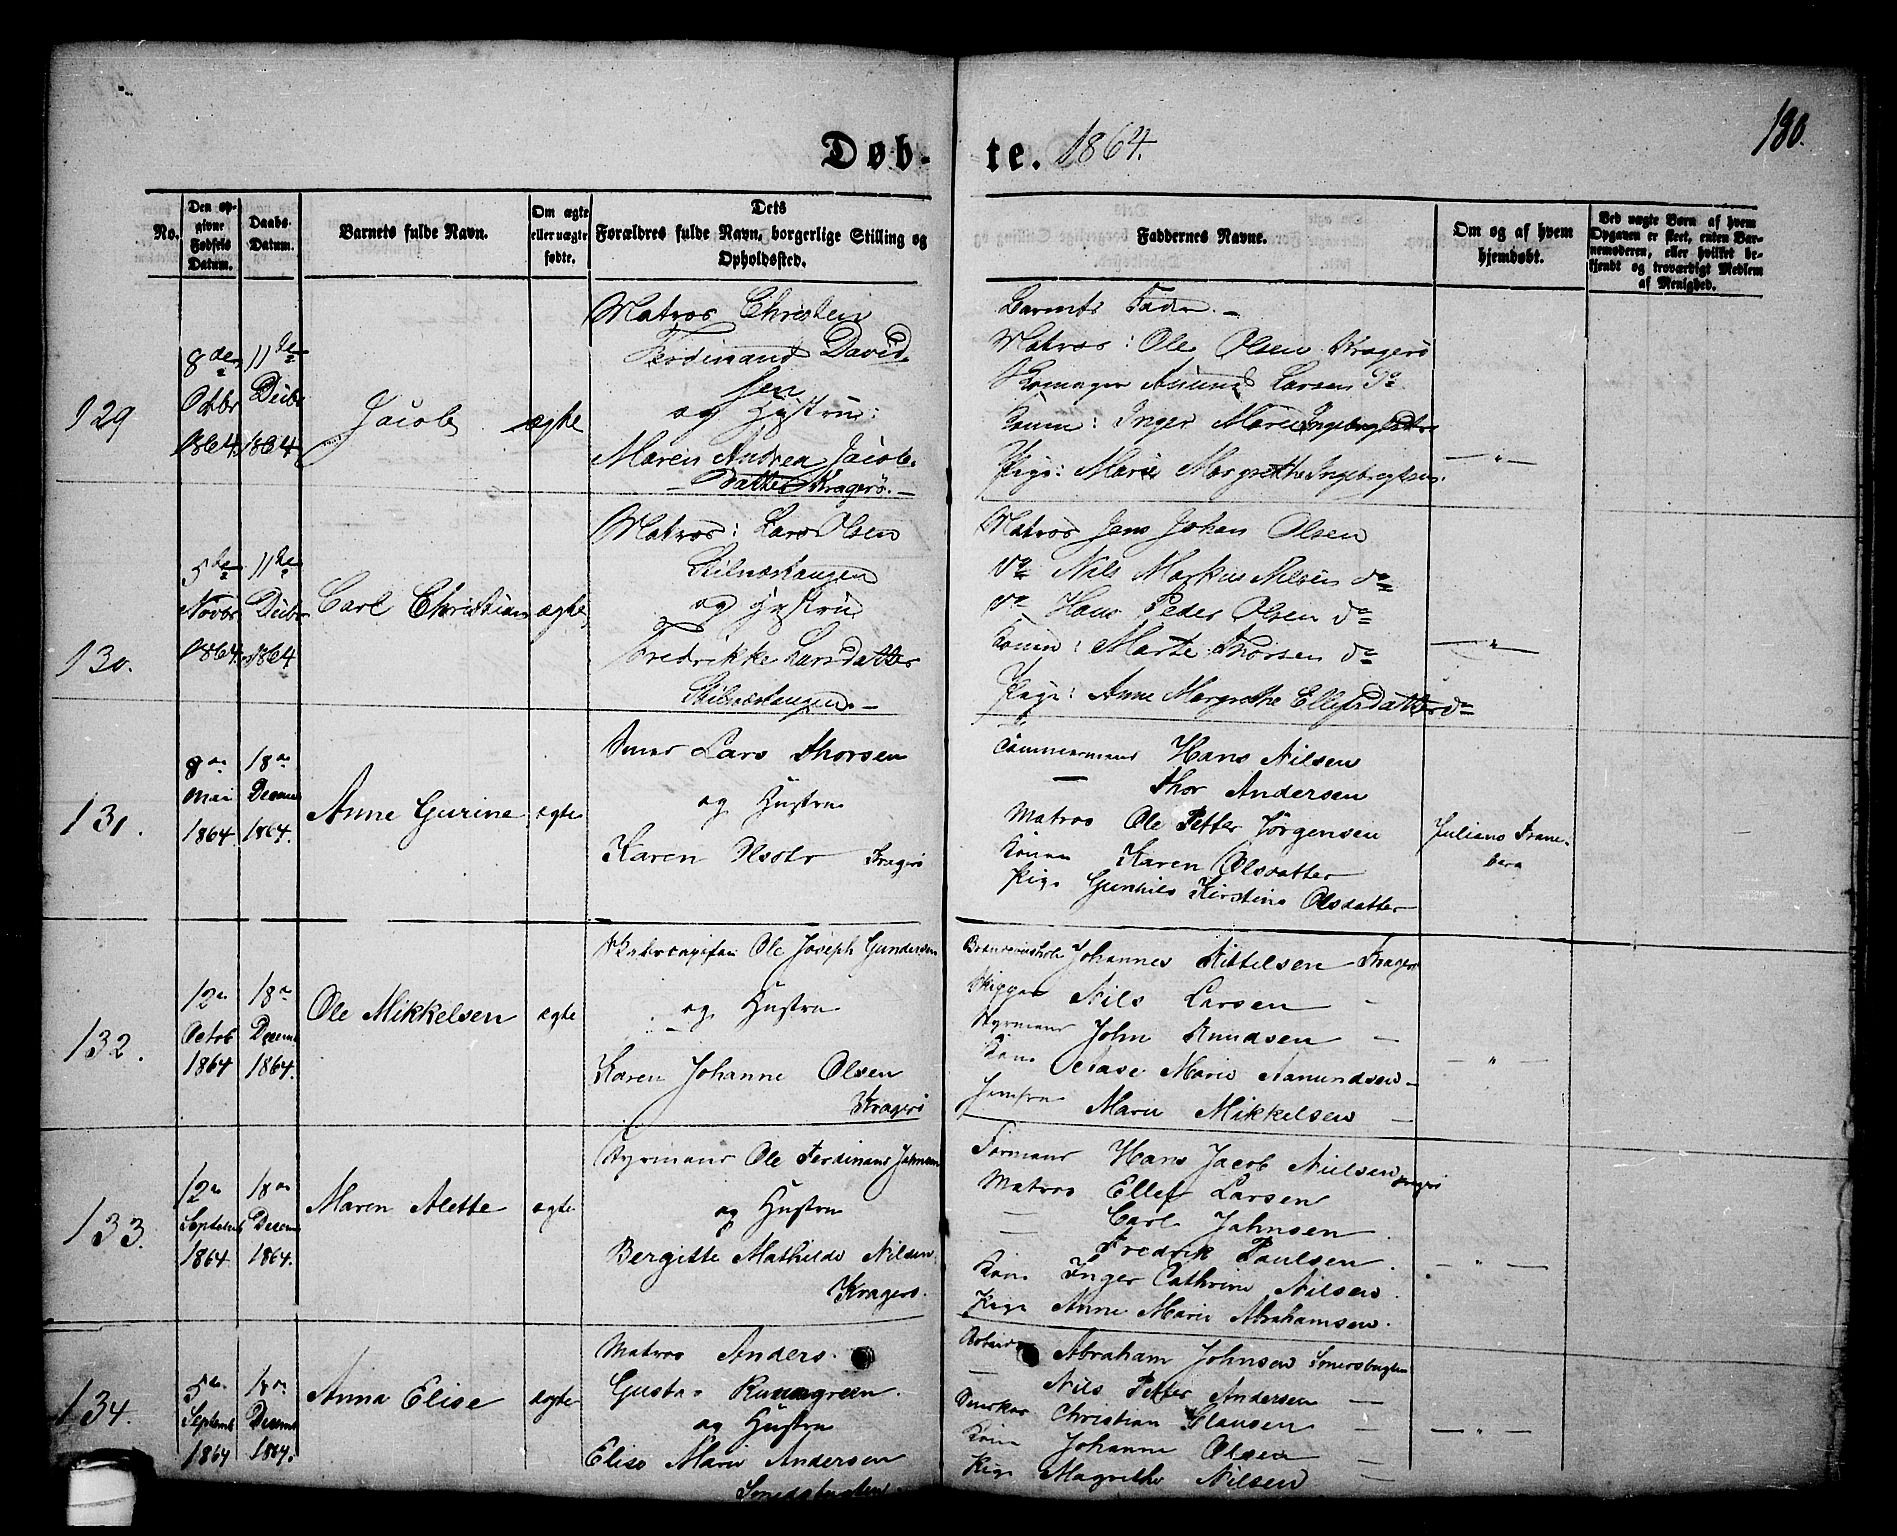 180.
Døb- te. 1864.
No.
Den op-
givne
Fødsels
Datum.
Daabs-
Datum.
Barnets fulde Navn.
Om ægte
eller uægte
fødte.
Dets
Forældres fulde Navn, borgerlige Stilling og
Opholdssted.
Faddernes Navne.
Om og af hvem
hjemdøbt.
Ved uægte Børn af hvem
Opgaven er skeet, enten Bar-
nemoderen, eller hvilket be-
kjendt og troværdigt Medlem
af Menighed.
129
8de
Octbr
1864.
11te
Decbr
1864
Jacob
ægte
Matros Christen
Ferdinand David
sen
og Hustru:
Maren Andrea Jacob.
Datter Kragerø.
Barnets Fader.
Matros: Ole Olsen Kragerø
Amund Larsen do
Konen: Inger Marie
Pige: Marie Margrethe Ingebregtsen
— " —
130.
5te
Novbr
1864.
11te
Decbr
1864
Carl Christian
ægte
Matros: Lars Olsen
og Hustru
Fredrikke Larsdatter
Matros Jens Johan Olsen
do Nils Markus Nilsen do
do Hans Peder Olsen do
Konen: Marte Thorsen do
Pige: Anne Margrethe Ellefsdatter do
— " —
131.
8de
Mai
1864.
18de
Decemb
1864.
Anne Gurine
ægte
Lars Thorsen
og Hustru
Karen Olsdtr Kragerø
Tømmermand Hans Nilsen
— Thor Andersen
Matros Ole Petter Jørgensen
Konen Karen Olsdatter
Pige Gunhild Kirstine Olsdatter
132.
12te
Octob
1864
18de
Decemb
1864.
Ole Mikkelsen
ægte
Ole Joseph Gundersen
og Hustru
Karen Johanne Olsen
Kragerø
Johannes Kittelsen Kragerø
Skipper Nils Larsen —
Styrmand John Knudsen —
Kone Aase Marie Aamundsen —
Jomfru Marie Mikkelsen —
— " —
133.
12te
Septemb
1864
18de
Decemb
1864.
Maren Alette
ægte
Styrmand Ole Ferdinand Johnsen
og Hustru
Bergitte Mathilde Nilsen
Kragerø.
Formand Hans Jacob Nielsen Kragerø
Matros Ellef Larsen
— Carl Johnsen
Fredrik Paulsen.
Kone Inger Cathrine Nilsen.
Pige Anne Marie Abrahamsen.
— " —
134.
5te
Septemb
1864
18de
Decemb
1864.
Anna Elise
ægte
Matros Anders
Gustav
og Hustru
Elise Marie Andersen
Arbeider Abraham Johnsen
— Nils Petter Andersen —
Christian Clausen —
Kone Johanne Olsen —
Pige Magrethe Nilsen —
— " —